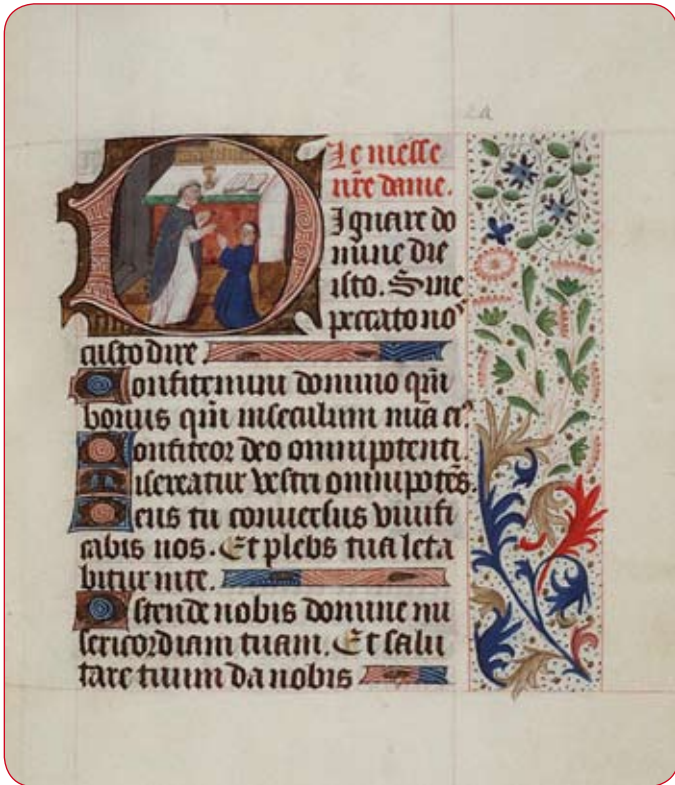 De messe
nre dame.
Dignare do
mine die
isto. Sine
peccato no
custodire.
Confitemini domino qm
bonus qm inseculum mia ei
Confiteor deo omnipotenti.
Misereatur vestri omnipotes.
Deus tu conversus vivifi
cabis nos. Et plebs tua leta
bitur in te.
Ostende nobis domine mi
sericordiam tuam. Et salu
tare tuum da nobis